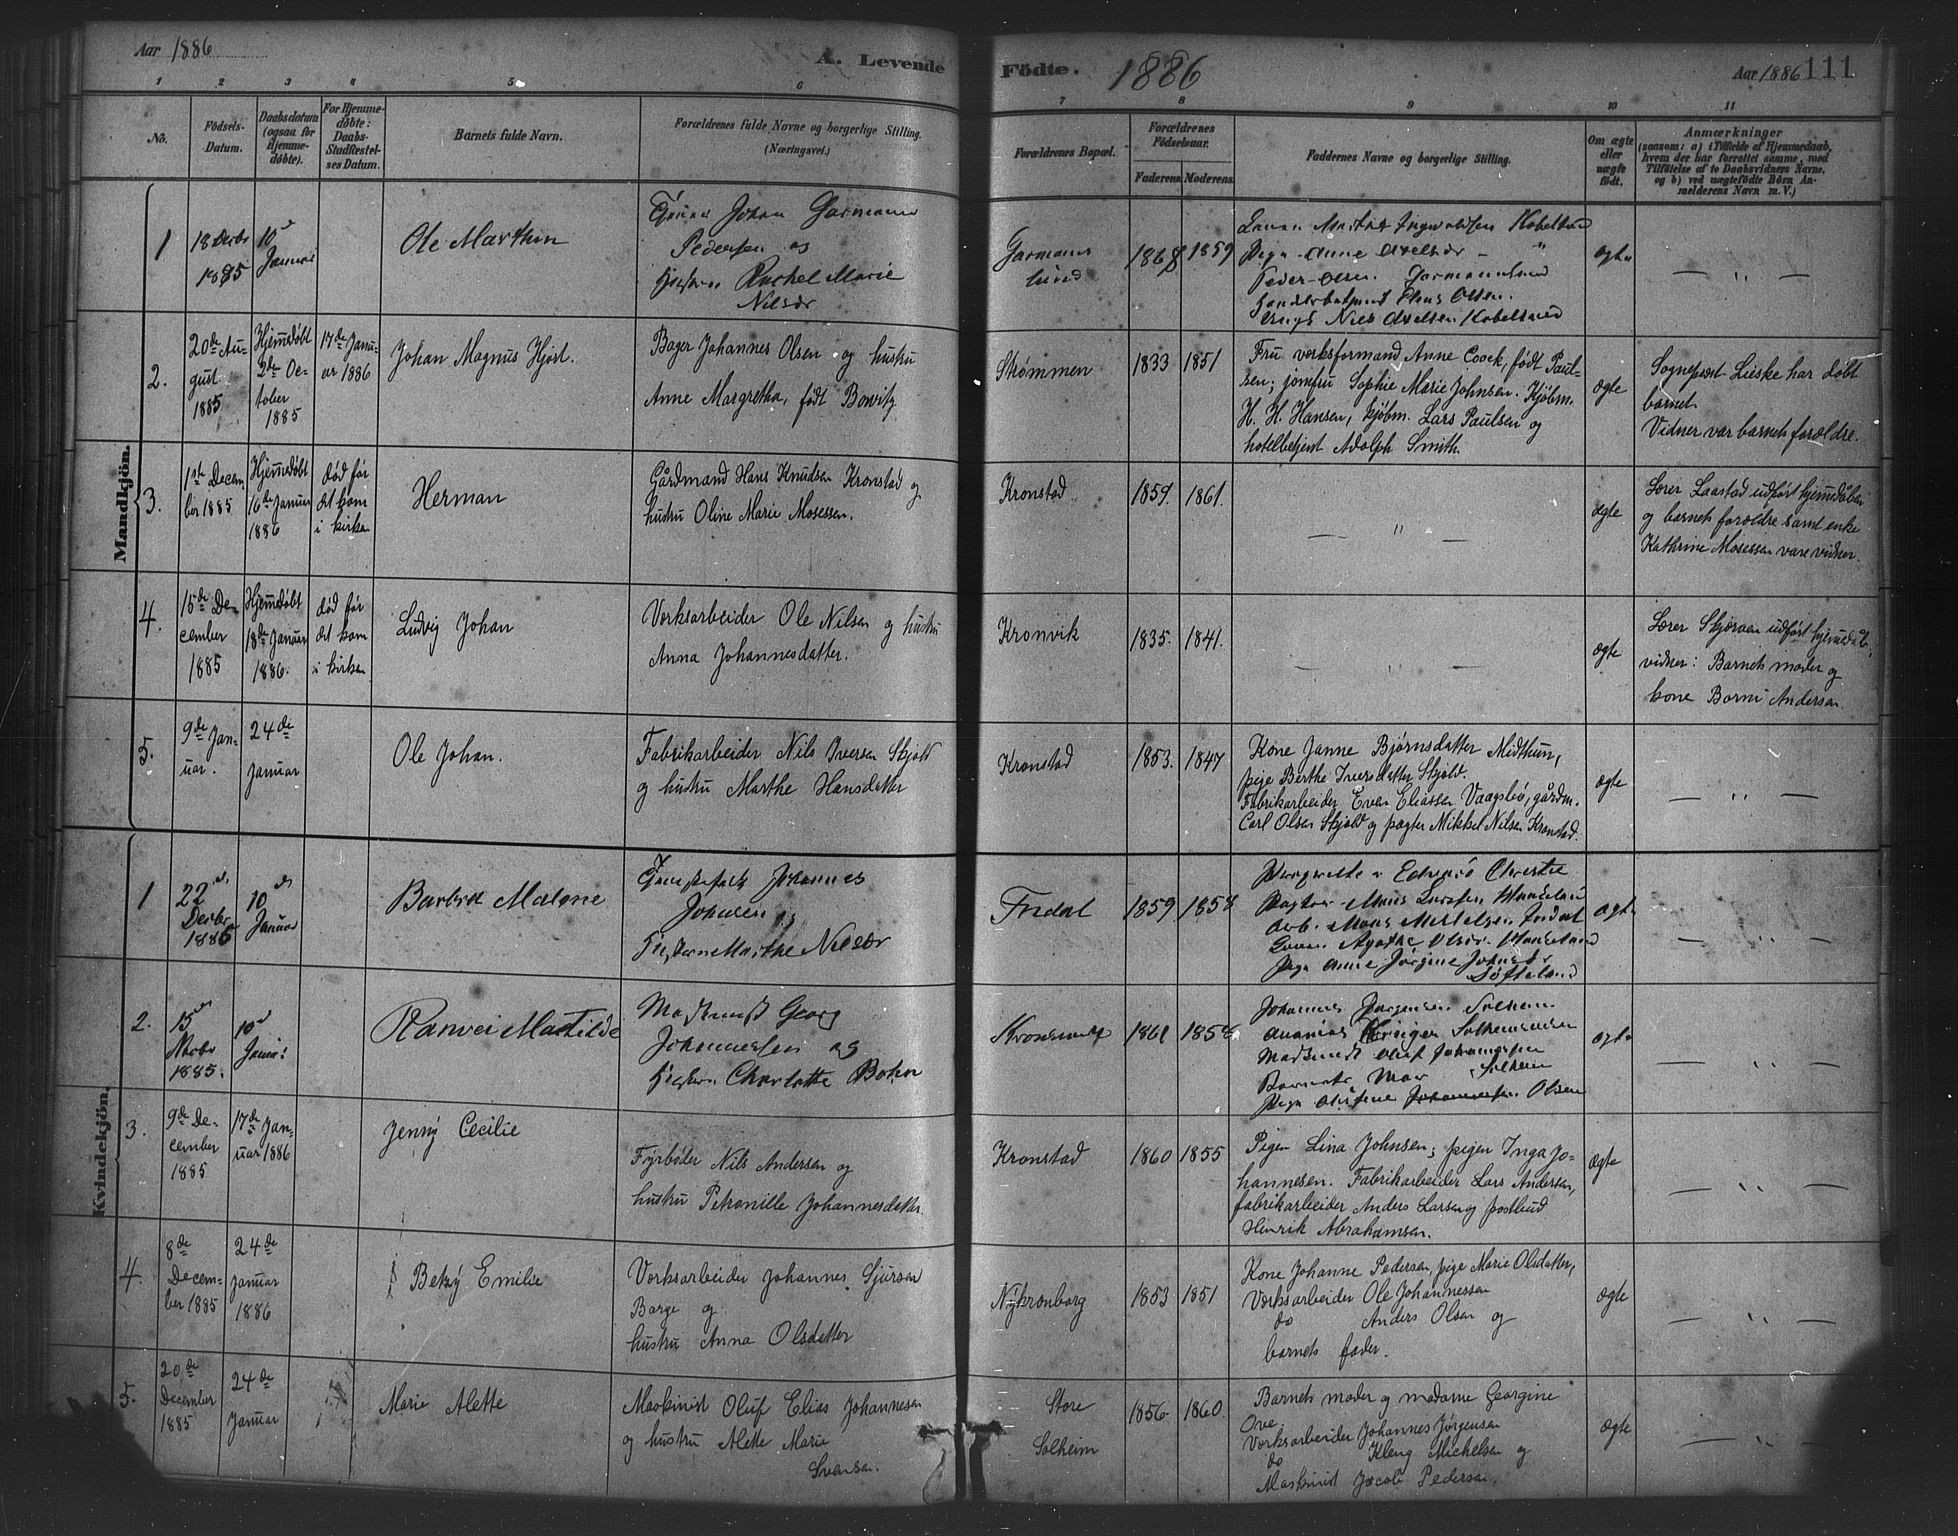 Aar 1886
A. Levende
Födte.
1886
Aar 1886
111
1 2 3 4 5 6 7 8 9 10 11
No.
Födsels-Datum.
Daabsdatum (ogsaa for Hjemmedöbte).
For Hjemmedöbte: Daabs-Stadfæstelses Datum.
Barnets fulde Navn.
Forældrenes fulde Navne og borgerlige Stilling. (Næringsvei.)
Forældrenes Bopæl.
Forældrenes Födselsaar.
Faderens Moderens
Faddernes Navne og borgerlige Stilling.
Om ægte eller uægte födt.
Anmærkninger
(saasom: a) i Tilfælde af Hjemmedaab,
hvem der har forrettet samme, med
Tilföielse af to Daabsvidners Navne,
og b) ved uægtefödte Börn An-
melderens Navn m. V.)
Mandkjön.
1
18 Decbr 1885
10 Januar
Ole Marthin
Johan Garmann
Pedersen og
Rachel Marie
Nilsdr
Garmanslund
1868 1859
Peder Olsen Garmanslund
Nils Axelsen Kobeltved
ægte
— " —
2.
20de August 1885
Hjemmedøbt 2de October 1885
17de Januar 1886
Johan Magnus Hjort.
Bager Johannes Olsen og hustru
Anne Margretha, født Bowitz
Strømmen
1833 1851
Fru verksformand Anne Coock, født Paul-
sen; jomfru Sophie Marie Johnsen. Kjøbm.
H. H. Hansen, kjøbm. Lars Paulsen og
hotelbetjent Adolph Smith.
ægte
Sogneprest Lieske har døbt
barnet.
Vidner var barnets forældre.
3.
1ste December 1885
Hjemmedøbt 16de Januar 1886
død før det kom i kirken
Herman
Gårdmand Hans Knudsen Kronstad og
hustru Oline Marie Mosessen.
Kronstad
1859. 1861.
— " —
ægte
Lærer Laastad udført hjemmedåben
og barnets forældre samt enke
Kathrine Mosessen vare vidner.
4.
15de December 1885
Hjemmedøbt 18de Januar 1886.
død før det kom i kirken
Ludvig Johan
Verksarbeider Ole Nilsen og hustru
Anna Johannesdatter.
Kronvik
1835. 1841.
— " —
ægte
Lærer udført hjemmedåb,
vidner: Barnets moder og
kone Andersen
5.
9de Januar.
24de Januar
Ole Johan.
Fabrikarbeider Nils Iversen Skjold
og hustru Marthe Hansdatter
Kronstad
1853. 1847
Kone Janne Bjørnsdatter Midthun,
pige Berthe Iversdatter Skjold.
Fabrikarbeider Even Eliassen Vaagsbø, gårdm.
Carl Olsen Skjold og pagter Mikkel Nilsen Kronstad.
ægte
— " —
Kvindekjön.
1
22 Decbr 1885
10 Januar
Barbra Malene
Johannes
Johnsen og
Marthe Nilsdr
Fridal
1859 1858
Christie
ægte
— " —
2.
15 Novbr 1885.
10 Januar
Ranvei Mathilde
Maskinist Georg
Johannessen og
Charlotte Bohn
1861 1858
Johannes Jørgensen Solheim
Maskinist Oluf Johannessen
Solheim
Barnets Mor
Pige Olsen
ægte
— " —
3.
9de December 1885
17de Januar 1886
Jenny Cecilie
Fyrbøder Nils Andersen og
hustru Petronille Johannesdatter.
Kronstad
1860 1855
Pigen Lina Johnsen; pigen Inga Jo-
hannesen. Fabrikarbeider Lars Andersen,
fabrikarbeider Anders Larsen og postbud
Henrik Abrahamsen.
ægte
— " —
4.
8de December 1885
24de Januar 1886
Betzy Emilie
Verksarbeider Johannes Sjursen
Borge og
hustru Anna Olsdatter
Nykronborg
1853 1851
Kone Johanne Pedersen, pige Marie Olsdatter,
Verksarbeider Ole Johannessen
do Anders Olsen og
barnets fader.
ægte
— " —
5.
20de December 1885
24de Januar
Marie Alette
Maskinist Oluf Elias Johannesen
og hustru Alette Marie
Svensen.
Store
Solheim
1856. 1860
Barnets moder og madame Georgine
Ove.
Verksarbeider Johannes Jørgensen
do Kleng Michelsen og
Maskinist Jacob Pedersen.
ægte
— " —